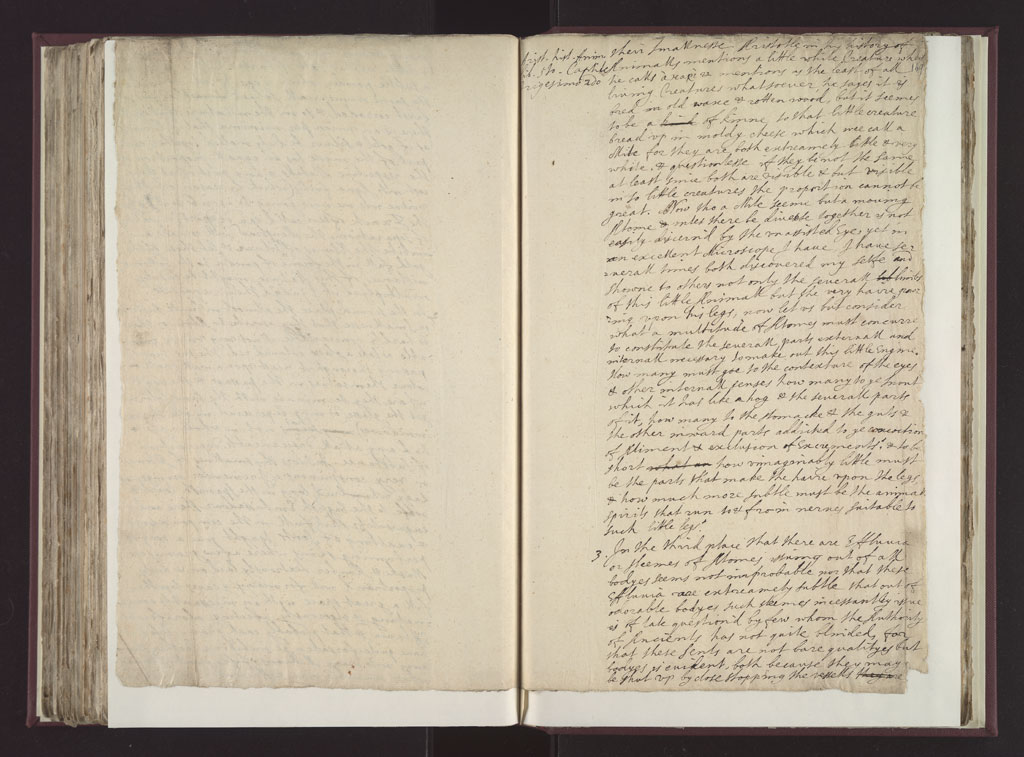 Arist. hist. Anim.
trigesimo 2do
their smallnesse. Aristotle in his history of
Animalls mentions a little white Creature which
he calls mentions as the least of all
living Creatures whatsoever he sayes it is
bred in old waxe & rotten wood, but it seemes
to be a kind of Emme, to that little creature
bread up in moldy cheese which wee call a
Mite for they are both extreamely little & very
white, & questionlesse if they be not the same
at least since both are visible & but visible
in so little creatures the proportion cannot be
great. Now tho a Mite seeme but a moving
Atome & unles there be divers together is not
easily discern'd by the unassisted Eye, yet in
an excellent Microscope I have I have se=
=verall times both discovered my selfe and
showne to others not only the severall limbs
of this little Animall but the very haire grow
=ing upon his legs, now let us but consider
what a multitude of Atomes must concurre
to constitute the severall parts externall and
internall necessary to make out this little Engine.
How many must goe to the contexture of the eyes
& other internall senses how many to ye snout
which it has like a hog & the severall parts
of it, how many to the stomacke & the guts &
the other inward parts addicted to ye concoction
of Aliment & exclusion of Excrements: & to be
short what an how unimaginably little must
be the parts that make the haire upon the legs
& how much more subtle must be the animall
spirits that run to & from in nerves suitable to
such little legs.
3 In the third place that there are Effluvia
or steemes of Atomes, out of all
bodyes seems not improbable nor that these
Effluvia are extreamely subtle that out of
odorable bodyes such steemes incessantly issue
is of late question'd by few whom the Authority
of Ancients has not quite blinded, for
that these sents are not bare qualityes but
bodyes is evident, both because they may
be shut up by close stopping the vessells they are